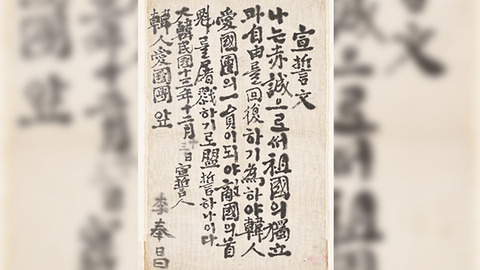 宣誓文
나는赤誠으로써祖國의獨立
과自由를回復하기爲하야韓人
愛國團의一員이되야敵國의首
魁를屠戮하기로盟誓하나이다
大韓民國十三年十二月十三日 宣誓人
韓人愛國團앞 李奉昌